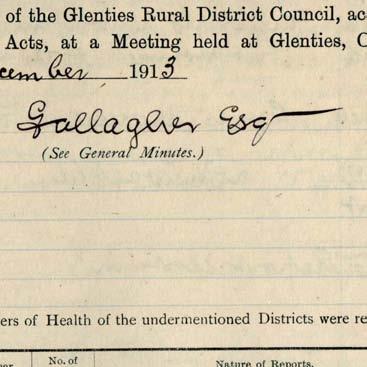 of the Glenties Rural District Council, ac
Acts, at a Meeting held at Glenties, C
cember 1913
Gallagher Esq
(See General Minutes.)
ers of Health of the undermentioned Districts were re
No. of
Nature of Reports.